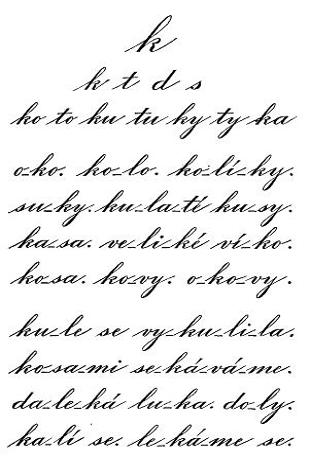 k
k t d s
ko to ku tu ky ty ka
o-ko. ko-lo. ko-lí-ky.
su-ky. ku-la-tí ku-sy.
ka-sa. ve-li-ké ví-ko.
ko-sa. ko-vy. o-ko-vy.
ku-le se vy-ku-li-la.
ko-sa-mi se-ká-vá-me.
da-le-ká lu-ka. do-ly.
ka-lí se. le-ká-me se.